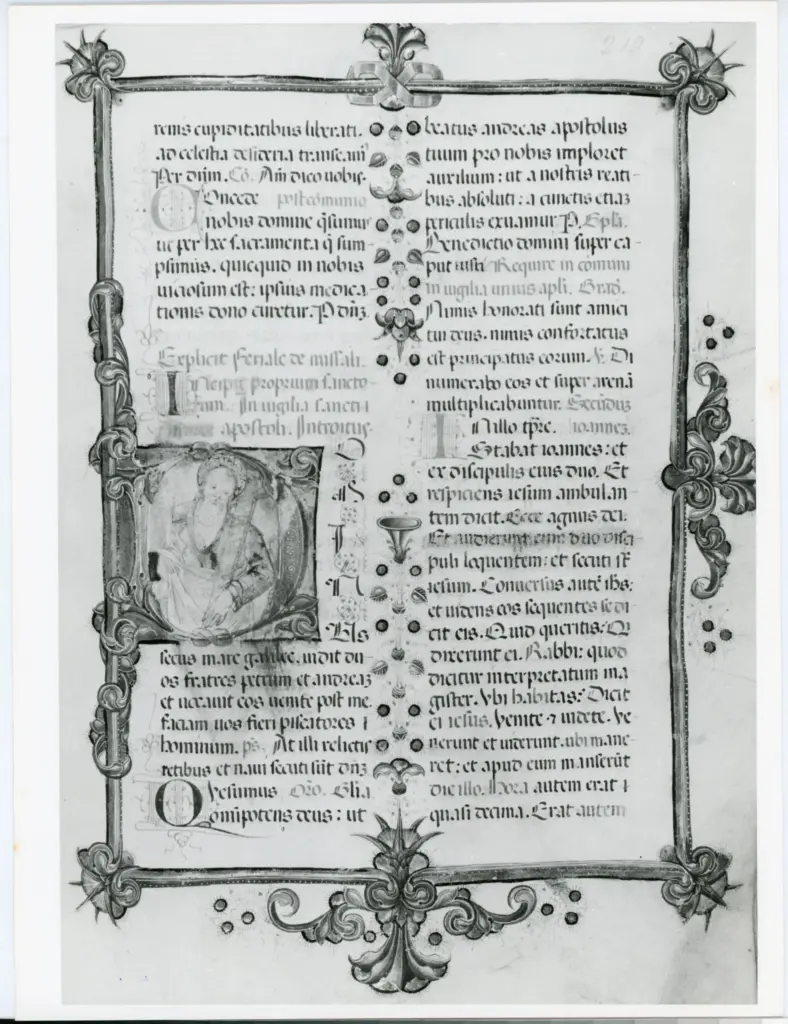 219
renis cupiditatibus liberati.
ad celestia desideria transeam
Per dnm. Co. Am dico uobis.
Oncede postcomunio
nobis domine qsumus
ut per hec sacramenta q sum
psimus. quicquid in nobis
uiciosum est: ipsius medica
tionis dono curetur. P dnz.
Explicit feriale de missali.
Incipit proprium sancto
rum. In uigilia sancti
apostoli. Introitus
D
N
I
N
Us
secus mare galilee. uidit du
os fratres petrum et andreaz
et uocauit eos uenite post me.
faciam uos fieri piscatores
hominum. ps. At illi relictis
retibus et naui secuti sut dnz
Vesumus Oro. Glia
omipotens deus: ut
beatus andreas apostolus
tuum pro nobis imploret
auxilium: ut a nostris reati
bus absoluti: a cunctis etiaz
periculis exuamur P. Epla.
Benedictio domini super ca
put iusti Require in comuni
in uigilia unius apli. Grad.
Nimis honorati sunt amici
tui deus. nimis confortatus
est principatus eorum. V. Di
numerabo eos et super arena
multiplicabuntur. Secunduz
In illo tpre. ioannez.
Stabat ioannes: et
ex discipulis eius duo. Et
respiciens iesum ambulan
tem dicit. Ecce agnus dei.
Et audierunt eum duo disci
puli loquentem: et secuti st
iesum. Conuersus aute ihs:
et uidens eos sequentes se di
cit eis. Quid queritis: Q
dixerunt ei. Rabbi: quod
dicitur interpretatum ma
gister. Vbi habitas: Dicit
ei iesus. Venite & uidete. Ve
nerunt et uiderunt. ubi mane
ret: et apud eum manserut
die illo. Hora autem erat
quasi decima. Erat autem